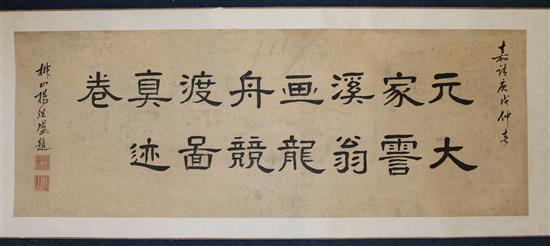 嘉靖庚戌仲春
元大
家霅
溪翁
画龍
舟競
渡啚
真迹
卷
椒山楊継盛題